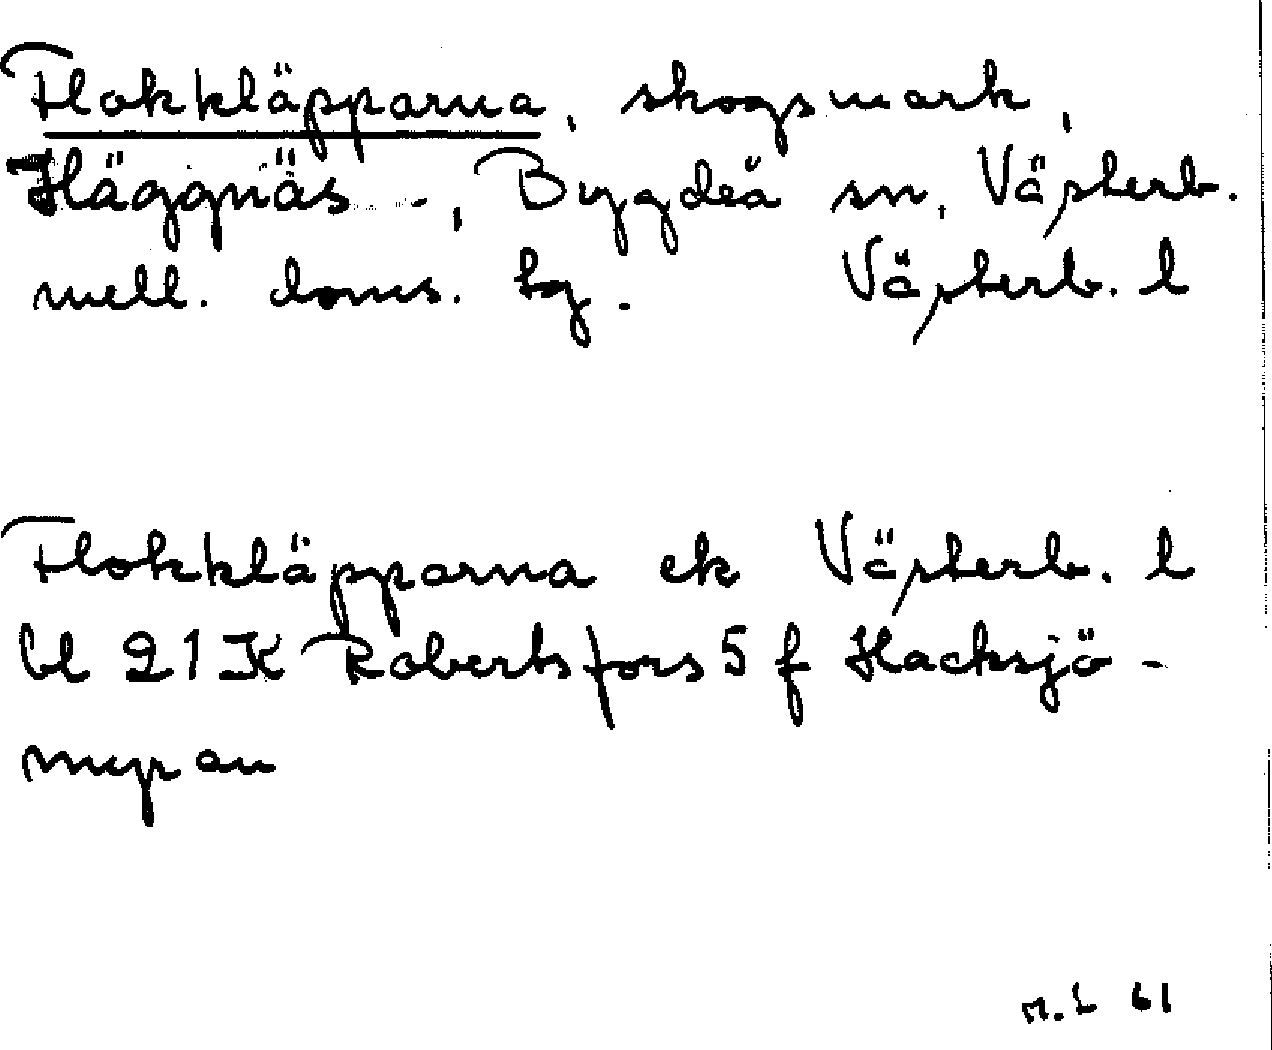 Flokkläpparna, skogsmark,
Häggnäs -, Bygdeå sn, Västerb.
mell. doms. tg. Västerb. l
Flokkläpparna ek Västerb. l
bl 21 K Robertsfors 5 f Hacksjö-
myran
M.L 61